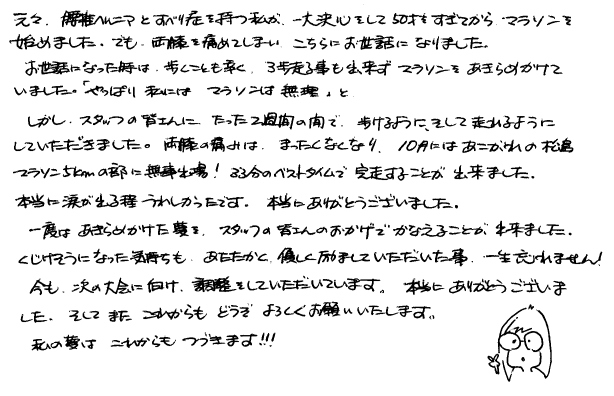 元々、脊椎ヘルニアとすべり症を持つ私が、一大決心をして50才をすぎてからマラソンを
始めました。でも、両膝を痛めてしまい、こちらにお世話になりました。
お世話になった時は、歩くことも辛く、3歩走る事も出来ずマラソンをあきらめかけて
いました。「やっぱり私にはマラソンは無理」と
しかし、スタッフの皆さんにたった2週間の間で、歩けるように、そして走れるように
していただきました。両膝の痛みは、まったくなくなり、10月にはあこがれの松島
マラソン5kmの部に無事出場!33分のベストタイムで完走することが出来ました。
本当に涙が出る程うれしかったです。本当にありがとうございました。
一度はあきらめかけた夢を、スタッフの皆さんのおかげでかなえることが出来ました。
くじけそうになった気持ちも、あたたかく、優しく励ましていただいた事、一生忘れません!
今も、次の大会に向け、調整をしていただいています。本当にありがとうございま
した。そしてまたこれからもどうぞよろしくお願いいたします。
私の夢はこれからもつづきます!!!